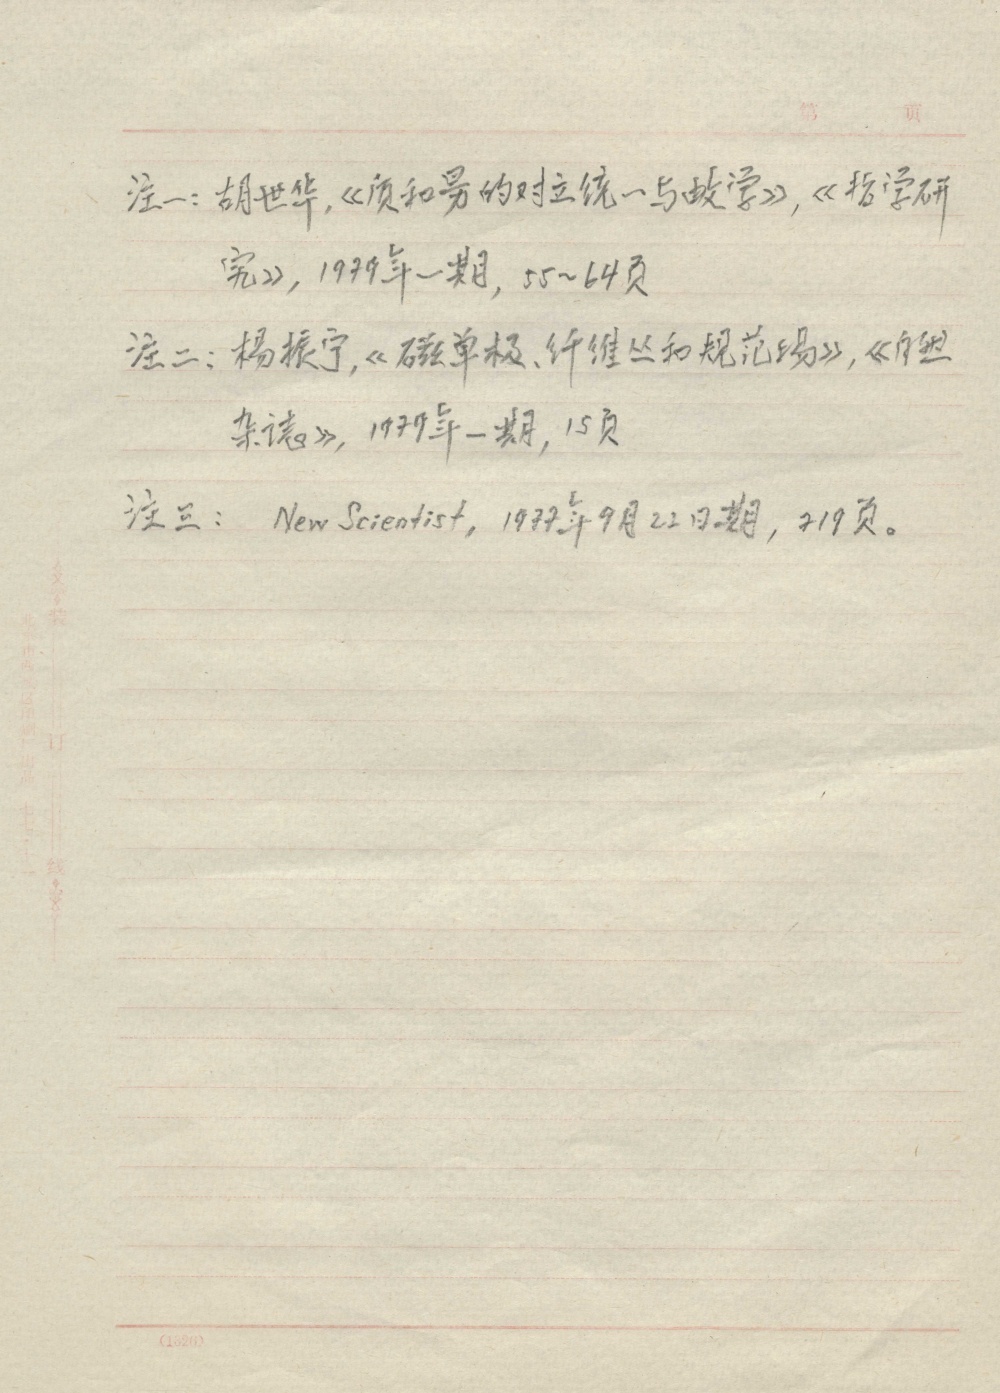 第 页
注一：胡世华，《质和量的对立统一与数学》，《哲学研
究》，1979年一期，55~64页
注二：杨振宁，《磁单极、纤维丛和规范场》，《自然
杂志》，1979年一期，15页
注三： New Scientist, 1977年9月22日期，719页。
装
订
线
(1626)